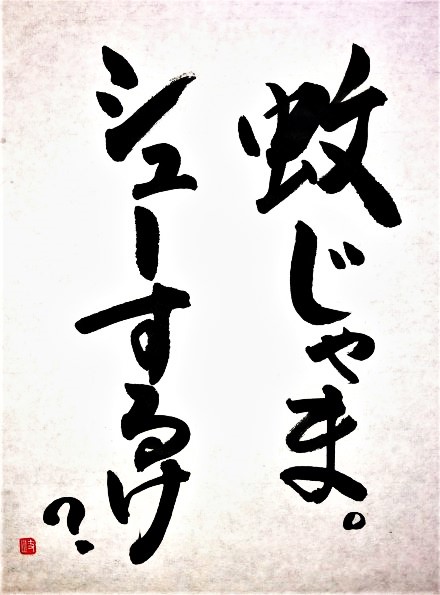 蚊じゃま。
シューするけ?